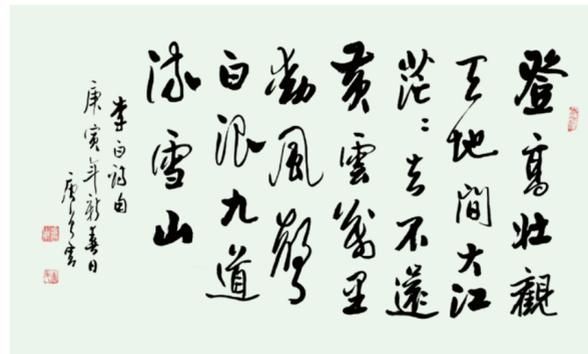 登高壯觀
天地間大江
茫〻去不還
黃雲萬里
動風
白浪九道
流雪山
李白詩句
庚寅年新春日